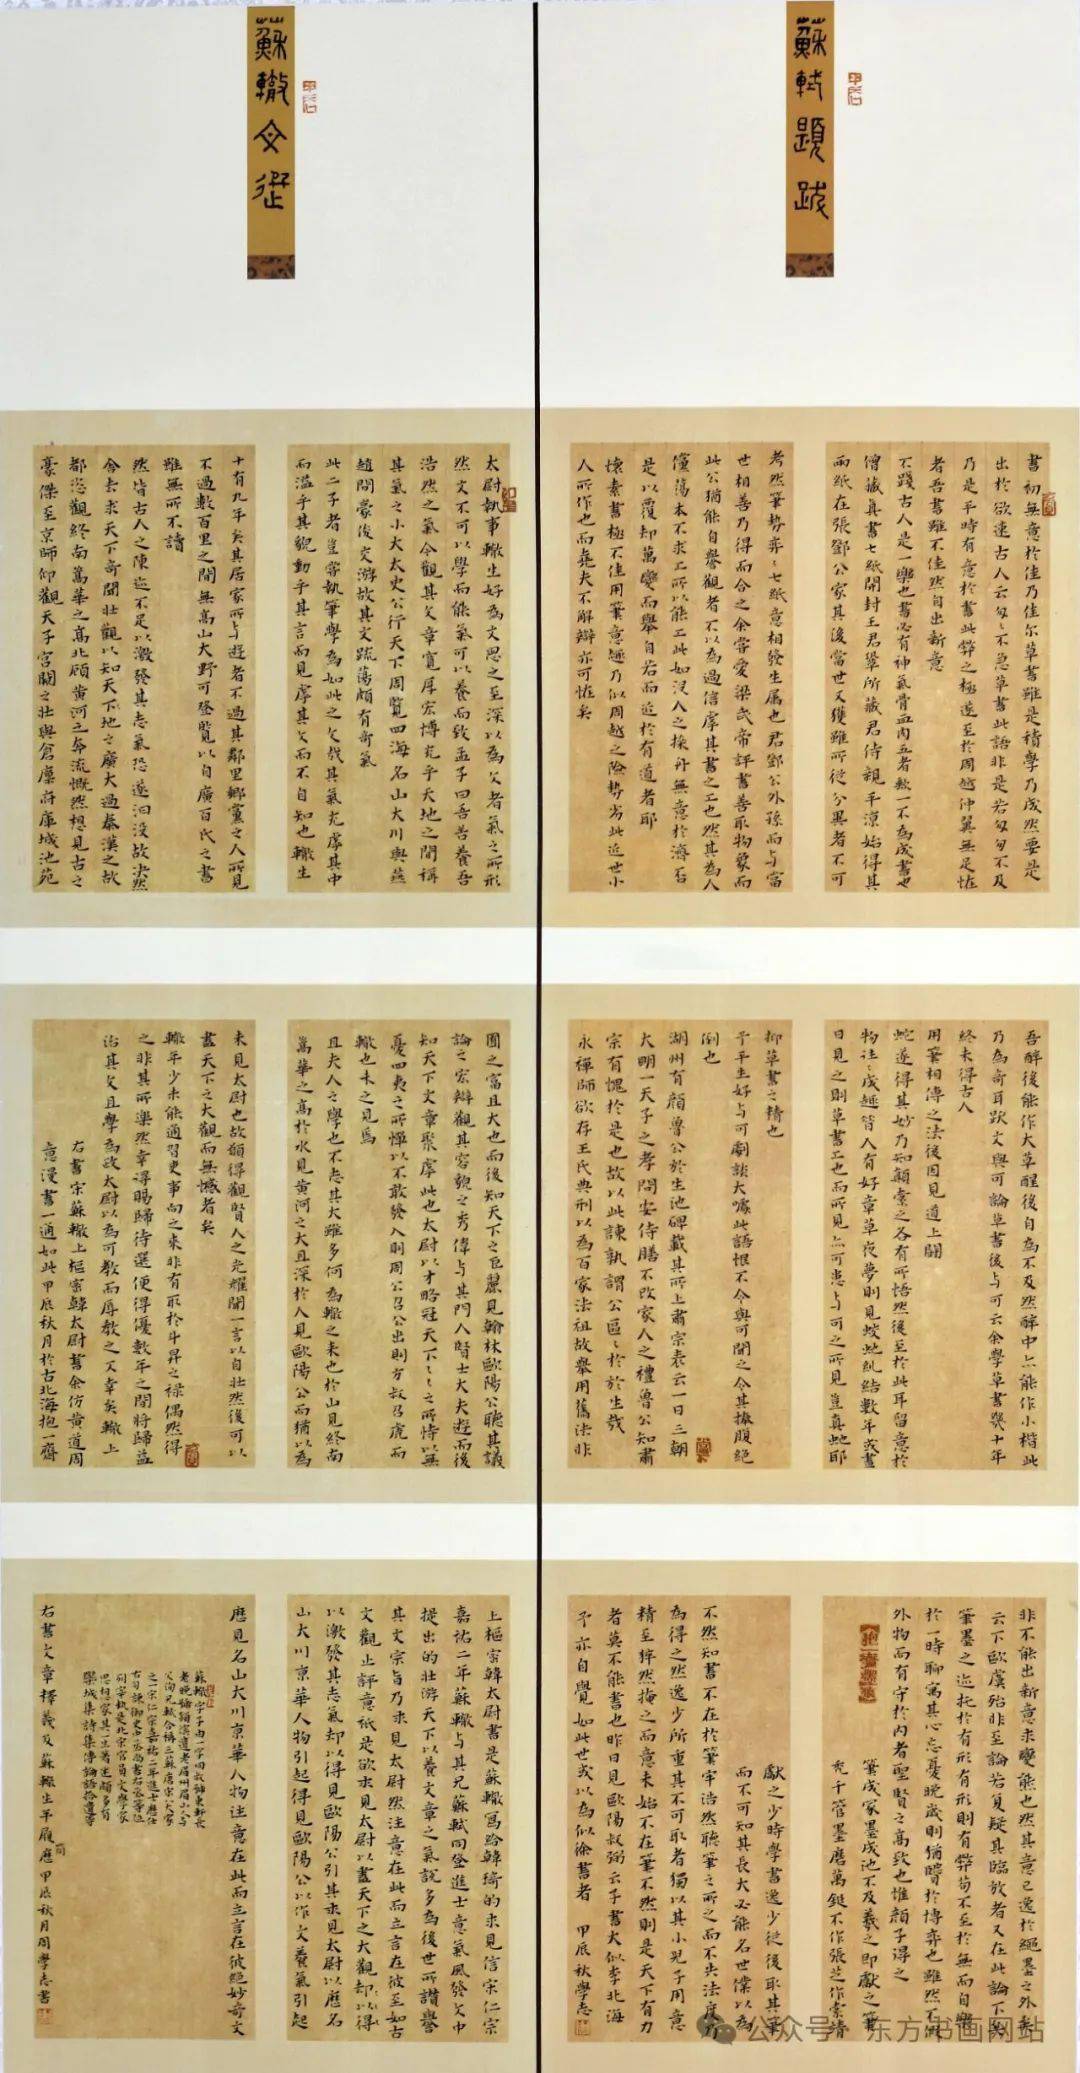 蘇軾題跋
書初無意於佳乃佳尔草書雖是積學乃成然要是
出於欲速古人云匆〻不急草書此語非是若匆匆不及
乃是平時有意於書此弊之極遂至於周越仲翼無足怪
者吾書雖不佳然自出新意
不踐古人是一樂也書必有神氣骨血肉五者缺一不為成書也
僧藏真書七紙開封王君鞏所藏君侍親平涼始得其
兩紙在張鄧公家其後當世又獲雖所從分異者不可
考然筆勢弈〻七紙意相發生屬也君鄧公外孫而与當
世相善乃得而合之余嘗愛梁武帝評書善取物象而
此公猶能自譽觀者不以為過信庫其書之工也然其為人
儻蕩本不求工所以能工此如沒人之操舟無意於濟否
是以覆卻萬變而舉自若而近於有道者耶
懷素書極不佳用筆意趣乃似周越之險勢劣此近世小
人所作也而堯夫不解辯亦可怪矣
吾醉後能作大草醒後自為不及然醉中亦能作小楷此
乃為奇耳跋文與可論草書後与可云余學草書幾十年
終未得古人
用筆相傳之法後因見道上鬭
蛇遂得其妙乃知顛素之各有所悟然後至於此耳留意於
物注〻成趣昔人有好章草夜夢則見蛟虵糾結數年或晝
日見之則草書工也而所見亦可患与可之所見豈真虵耶
抑草書之精也
予平生好与可劇談大噱此語恨不令與可聞之令其捧腹絕
倒也
湖州有顏魯公放生池碑載其所上肅宗表云一日三朝
大明一天子之孝問安侍膳不改家人之禮魯公知肅
宗有愧於是也故以此諫孰謂公區〻於於生哉
永禪師欲存王氏典刑以為百家法祖故舉用舊法非
非不能出新意求變態也然其意已逸於繩墨之外矣
云下歐虞殆非至論若復疑其臨放者又在此論下矣
筆墨之迹托於有形有形則有弊苟不至於無而自樂
於一時聊寓其心忘憂晚歲則猶賢於博弈也雖然不假
外物而有守於內者聖賢之高致也惟顏子得之
筆成冢墨成池不及羲之即獻之筆
禿千管墨磨萬鋌不作張芝作索靖
獻之少時學書逸少從後取其筆
而不可知其長大必能名世僕以為
不然知書不在於筆牢浩然聽筆之所之而不失法度乃
為得之然逸少所重其不可取者獨以其小兒子用意
精至猝然掩之而意未始不在筆不然則是天下有力
者莫不能書也昨日見歐陽叔弼云子書大似李北海
予亦自覺如此世或以為似徐書者 甲辰秋學志
蘇轍文選
太尉執事轍生好為文思之至深以為文者氣之所形
然文不可以學而能氣可以養而致孟子曰吾善養吾
浩然之氣今觀其文章寬厚宏博充乎天地之間稱
其氣之小大太史公行天下周覽四海名山大川與燕
趙間豪俊交游故其文疏蕩頗有奇氣
此二子者豈嘗執筆學為如此之文哉其氣充庫其中
而溢乎其貌動乎其言而見庫其文而不自知也轍生
十有九年矣其居家所与遊者不過其鄰里鄉黨之人所見
不過數百里之間無高山大野可登覽以自廣百氏之書
雖無所不讀
然皆古人之陳迹不足以激發其志氣恐遂汩沒故決然
舍去求天下奇聞壯觀以知天下地之廣大過秦漢之故
都恣觀終南嵩華之高北顧黃河之奔流慨然想見古之
豪傑至京師仰觀天子宮闕之壯與倉廩府庫城池苑
囿之富且大也而後知天下之巨麗見翰林歐陽公聽其議
論之宏辯觀其容貌之秀偉与其門人賢士大夫遊而後
知天下文章聚庫此也太尉以才略冠天下〻〻之所恃以無
憂四夷之所憚以不敢發入則周公召公出則方叔召虎而
轍也未之見焉
且夫人之學也不志其大雖多何為轍之来也於山見終南
嵩華之高於水見黃河之大且深於人見歐陽公而猶以為
未見太尉也故願得觀賢人之光耀聞一言以自壯然後可以
盡天下之大觀而無憾者矣
轍年少未能通習吏事向之來非有取於斗升之祿偶然得
之非其所樂然幸得賜歸待選便得優數年之間將歸益
治其文且學為政太尉以為可教而辱教之又幸矣轍上
右書宋蘇轍上樞密韓太尉書余仿黃道周
意漫書一通如此甲辰秋月於古北海抱一齋
上樞密韓太尉書是蘇轍寫給韓琦的求見信宋仁宗
嘉祐二年蘇轍与其兄蘇軾同登進士意氣風發文中
提出的壯游天下以養文章之氣說多為後世所讚譽
其文宗旨乃求見太尉然注意在此而立言在彼至如古
文觀止評意祇是欲求見太尉以盡天下之大觀却以得
以激發其志氣却以得見歐陽公引其求見太尉以歷名
山大川京華人物引起得見歐陽公以作文養氣引起
歷見名山大川京華人物注意在此而立言在彼絕妙奇文
蘇轍字子由一字同叔號東軒長
老晚號潁濱遺老眉州眉山人与
父洵兄軾合稱三蘇唐宋八大家
之一宋仁宗嘉祐二年進士歷任
右司諫御史中丞尚書右丞等位
列宰執是北宋官員文學家
思想家其一生著述頗多有
欒城集詩集傳論語拾遺等
右書文章釋義及蘇轍生平履歷甲辰秋月周學志書
公众号 东方书画网站